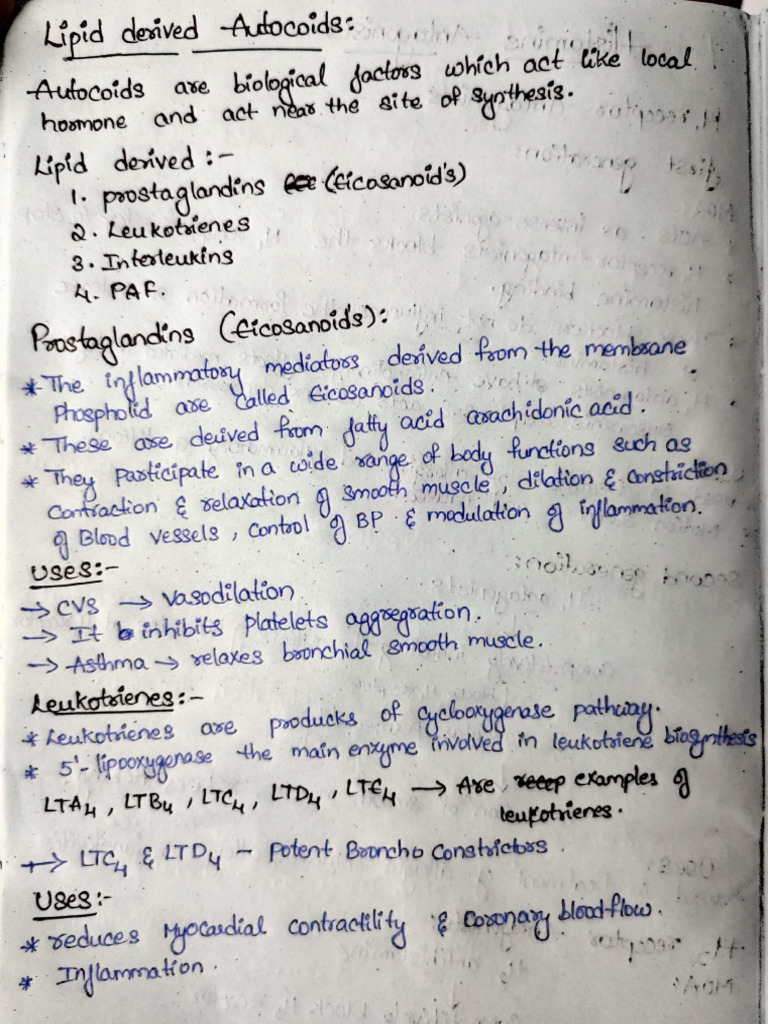 Lipid derived Autocoids:
Autocoids are biological factors which act like local
hormone and act near the site of synthesis.
Lipid derived :-
1. prostaglandins (Eicosanoid's)
2. Leukotrienes
3. Interleukins
4. PAF.
Prostaglandins (Eicosanoids):
* The inflammatory mediators derived from the membrane
Phospholid are called Eicosanoids.
* These are deived from fatty acid arachidonic acid.
* They Participate in a wide range of body functions such as
Contraction & relaxation of smooth muscle, dilation & constriction
of Blood vessels, control of BP & modulation of inflammation.
Uses:-
→ CVS → Vasodilation
→ It inhibits Platelets aggregration.
→ Asthma → relaxes bronchial smooth muscle.
Leukotrienes:-
* Leukotrienes are producks of cyclooxygenase pathway.
* 5'-lipooxygenase the main enzyme involved in leukotriene biosynthesis
LTA4, LTB4, LTC4, LTD4, LTE4 → Are examples of
leukotrienes.
→ LTC4 & LTD4 - Potent Broncho Constrictors.
Uses:-
* reduces Myocardial contractility & Coronary blood flow.
* Inflammation.